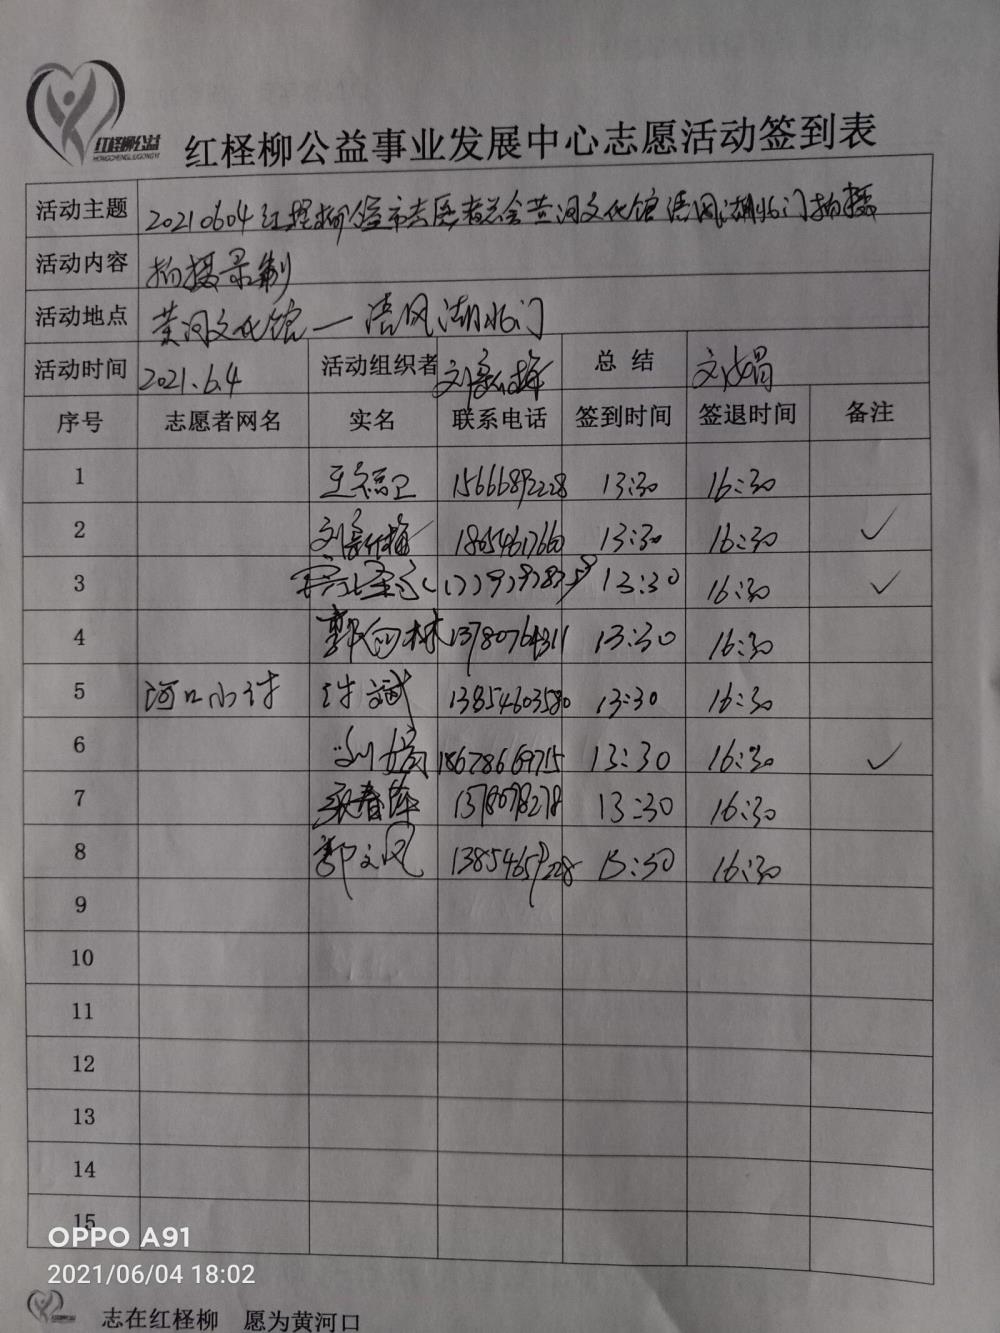 红柽柳公益
HONGCHENGLIUGONGYI
红柽柳公益事业发展中心志愿活动签到表
活动主题 20210604红柽柳 市志愿者总会黄河文化馆清风湖北门拍摄
活动内容 拍摄录制
活动地点 黄河文化馆—清风湖北门
活动时间 2021.6.4 活动组织者 刘新梅 总结 刘娟
序号 志愿者网名 实名 联系电话 签到时间 签退时间 备注
1 15666892228 13:30 16:30
2 刘新梅 18654617660 13:30 16:30 ✓
3 13:30 16:30 ✓
4 郭向林 13780764311 13:30 16:30
5 河口小许 许斌 13854603580 13:30 16:30
6 刘娟 18678669715 13:30 16:30 ✓
7 春萍 13:30 16:30
8 郭文凤 13854659228 13:30 16:30
9
10
11
12
13
14
15
OPPO A91
2021/06/04 18:02
志在红柽柳 愿为黄河口